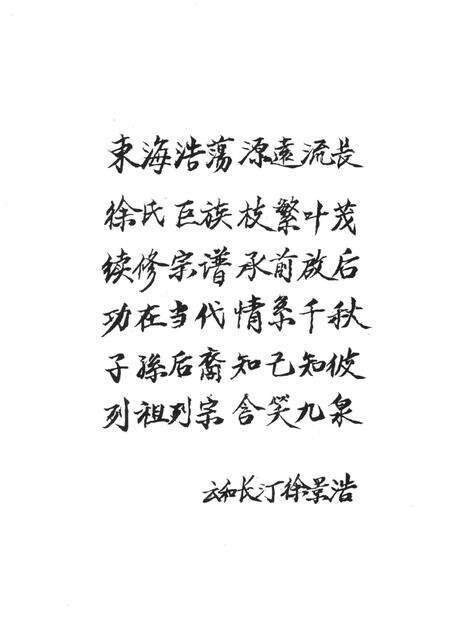 東海浩蕩 源遠流長
徐氏巨族 枝繁叶茂
续修宗谱 承前啟后
功在当代 情系千秋
子孫后裔 知己知彼
列祖列宗 含笑九泉
云和长汀徐景浩